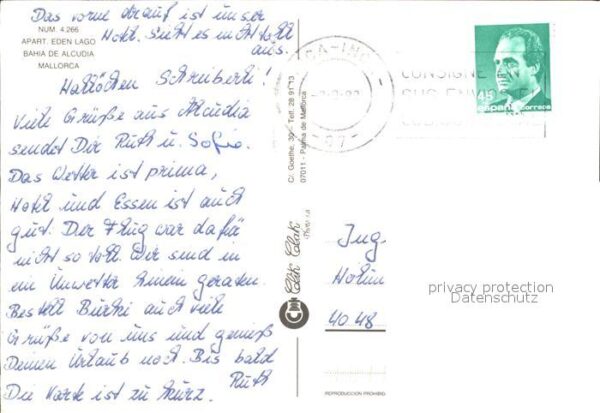 Das vorne drauf ist unser
Hotel. Sieht es nicht toll
aus.
NUM. 4.266
APART. EDEN LAGO
BAHIA DE ALCUDIA
MALLORCA
Hallöchen Schreiberli!
Viele Grüße aus Alcudia
sendet Dir Ruth u. Sofie.
Das Wetter ist prima,
Hotel und Essen ist auch
gut. Der Flug war dafür
nicht so toll. Wir sind in
ein Unwetter hinein geraten.
Bestell Burki auch viele
Grüße von uns und genieß
Deinen Urlaub noch. Bis bald
Ruth
Die Karte ist zu kurz.
C/. Goethe, 30 - Telf. 28 91 13
07011 - Palma de Mallorca
Click Clack
45
España correos
CONSIGNE
SUS ENVIOS
Ing.
Holm
4048
privacy protection
Datenschutz
REPRODUCCION PROHIBID